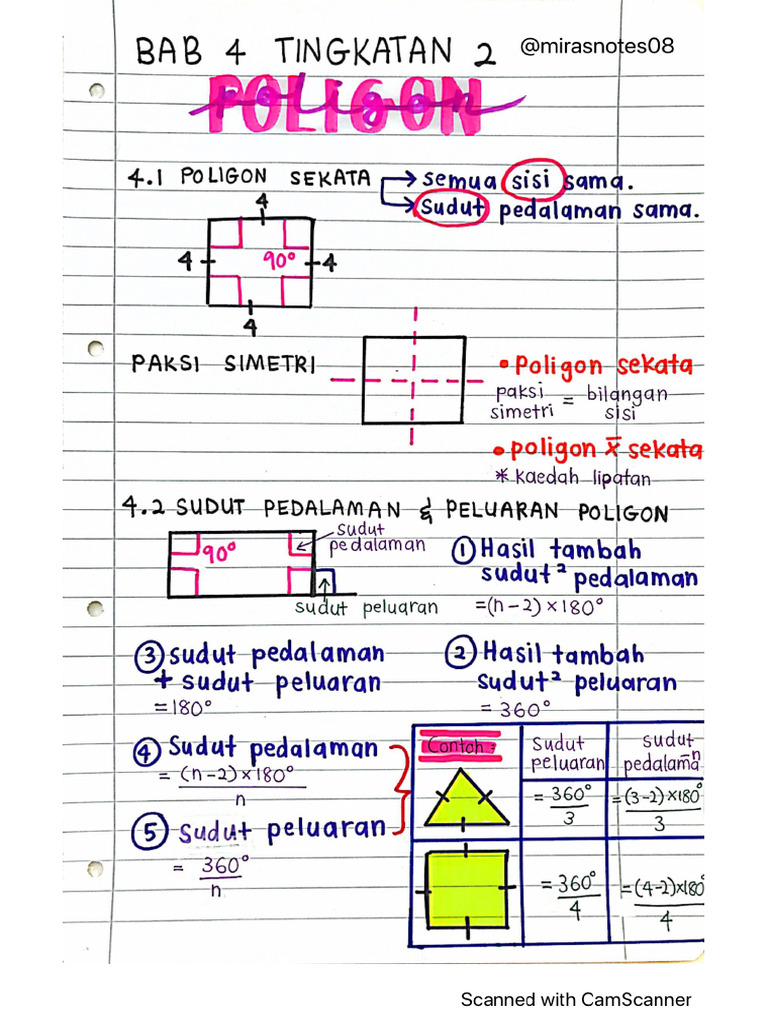 BAB 4 TINGKATAN 2
@mirasnotes08
POLIGON
poligon
4.1 POLIGON SEKATA → semua sisi sama.
→ Sudut pedalaman sama.
4
4
90°
4
4
PAKSI SIMETRI
• Poligon sekata
paksi simetri = bilangan sisi
• poligon x̄ sekata
* kaedah lipatan
4.2 SUDUT PEDALAMAN & PELUARAN POLIGON
90°
sudut
pedalaman
sudut peluaran
① Hasil tambah
sudut² pedalaman
=(n-2)×180°
② Hasil tambah
sudut² peluaran
= 360°
③ sudut pedalaman
+ sudut peluaran
=180°
④ Sudut pedalaman
= (n-2)×180°
n
⑤ Sudut peluaran
= 360°
n
Contoh:
Sudut
peluaran
sudut
pedalaman
= 360°
3
=(3-2)×180°
3
= 360°
4
=(4-2)×180°
4
Scanned with CamScanner